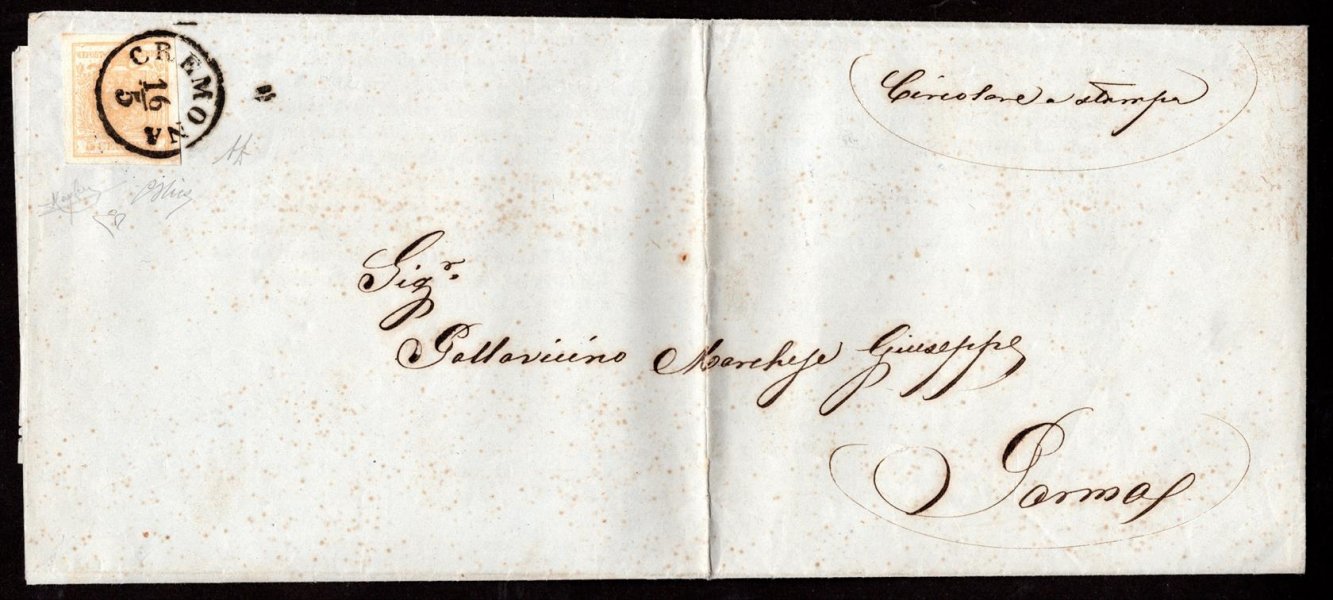 CREMONA
16
5
Circolare a stampa
Sigr.
Pallavicino Marchese Giuseppe
Parma